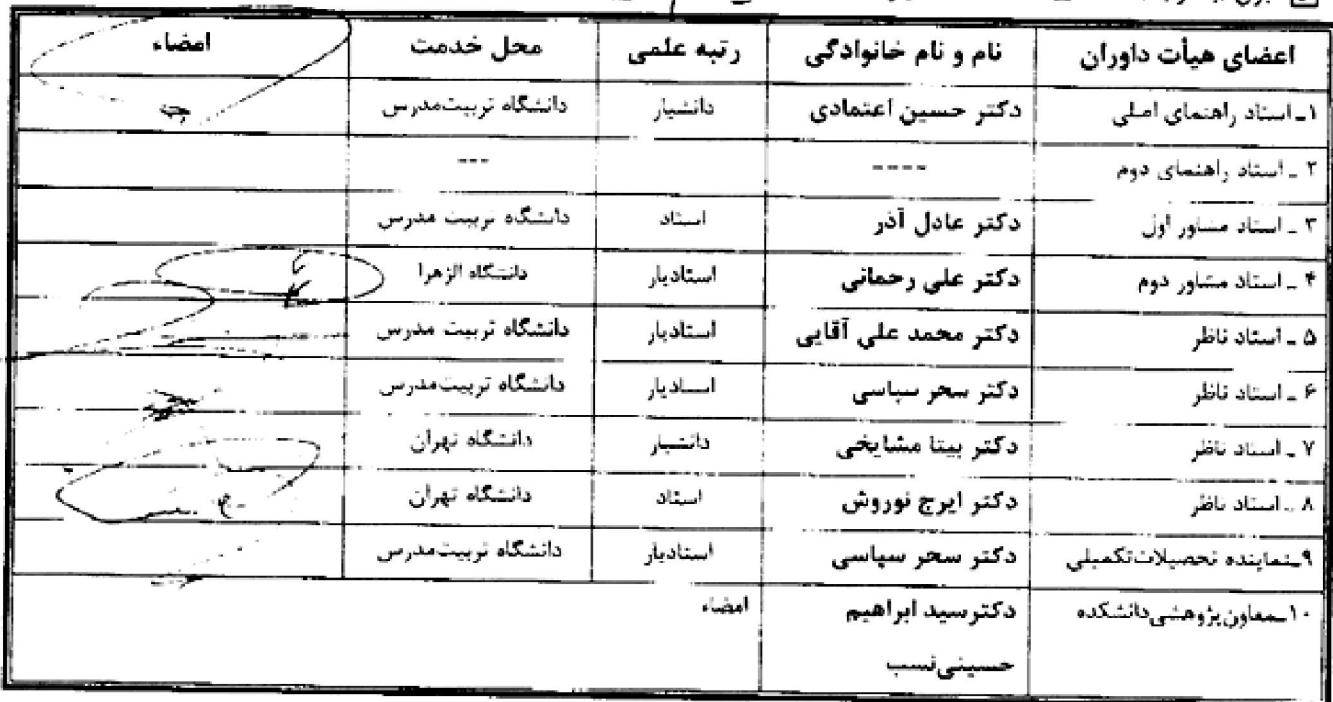 اعضای هیأت داوران نام و نام خانوادگی رتبه علمی محل خدمت امضاء
۱ـ استاد راهنمای اصلی دکتر حسین اعتمادی دانشیار دانشگاه تربیت‌مدرس
۲ ـ استاد راهنمای دوم ---- ---
۳ ـ استاد مشاور اول دکتر عادل آذر استاد دانشگاه تربیت مدرس
۴ ـ استاد مشاور دوم دکتر علی رحمانی استادیار دانشگاه الزهرا
۵ ـ استاد ناظر دکتر محمد علی آقایی استادیار دانشگاه تربیت مدرس
۶ ـ استاد ناظر دکتر سحر سپاسی استادیار دانشگاه تربیت‌مدرس
۷ ـ استاد ناظر دکتر بیتا مشایخی دانشیار دانشگاه تهران
۸ ـ استاد ناظر دکتر ایرج نوروش استاد دانشگاه تهران
۹ـنماینده تحصیلات‌تکمیلی دکتر سحر سپاسی استادیار دانشگاه تربیت‌مدرس
۱۰ـمعاون‌پژوهشی‌دانشکده دکترسید ابراهیم امضاء
حسینی‌نسب